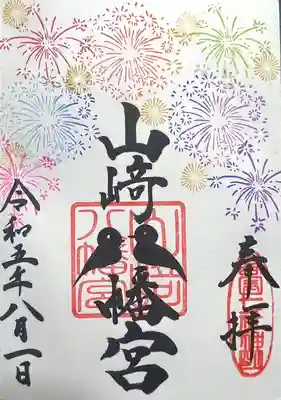 奉拝
山崎八幡宮
令和五年八月一日